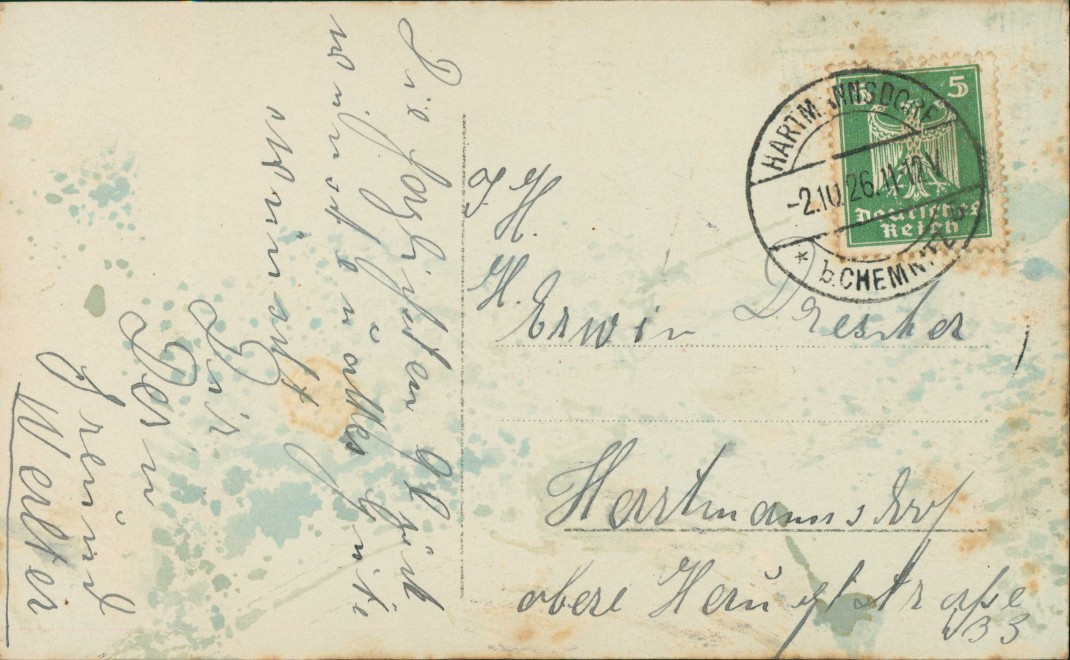 Die herzlichsten Glück
wünsche u. alles Gute
wünscht
Dir
Dein
Freund
Walter
J. H.
H. Erwin Drescher
Hartmannsdorf
obere Hauptstraße
33
5
Deutsches
Reich
HARTMANNSDORF
-2.10.26.11-12V
* b. CHEMNITZ